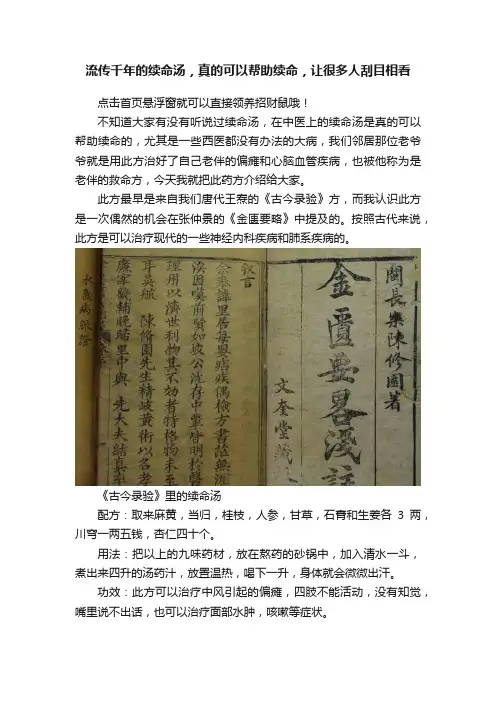 流传千年的续命汤，真的可以帮助续命，让很多人刮目相看
点击首页悬浮窗就可以直接领养招财鼠哦！
不知道大家有没有听说过续命汤，在中医上的续命汤是真的可以
帮助续命的，尤其是一些西医都没有办法的大病，我们邻居那位老爷
爷就是用此方治好了自己老伴的偏瘫和心脑血管疾病，也被他称为是
老伴的救命方，今天我就把此药方介绍给大家。
此方最早是来自我们唐代王焘的《古今录验》方，而我认识此方
是一次偶然的机会在张仲景的《金匮要略》中提及的。按照古代来说，
此方是可以治疗现代的一些神经内科疾病和肺系疾病的。
閩長樂陳修園著
金匱要畧淺註
文奎堂藏
敘言
余奉諱里居每嬰痞疾偶檢方書茫無涯
涘因嘆前賢如坡公沈存中輩皆明於醫
理用以濟世利物其不效者特格物未至
耳吾鄉 陳修園先生精岐黃術以名孝
廉宰畿輔晚歸里中與 先大夫結真率
水氣病脈證
《古今录验》里的续命汤
配方：取来麻黄，当归，桂枝，人参，甘草，石膏和生姜各 3 两，
川穹一两五钱，杏仁四十个。
用法：把以上的九味药材，放在熬药的砂锅中，加入清水一斗，
煮出来四升的汤药汁，放置温热，喝下一升，身体就会微微出汗。
功效：此方可以治疗中风引起的偏瘫，四肢不能活动，没有知觉，
嘴里说不出话，也可以治疗面部水肿，咳嗽等症状。